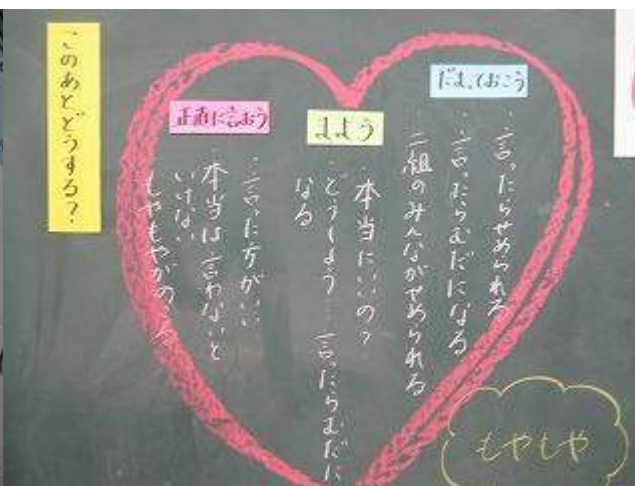 だまっておこう
・言ったらせめられる
・言ったらむだになる
・二組のみんながせめられる
まよう
・本当にいいの?
・どうしよう…言ったらむだに
なる
正直に言おう
・言った方がいい
・本当は言わないと
いけない
もやもやがのこる
このあとどうする?
もやもや